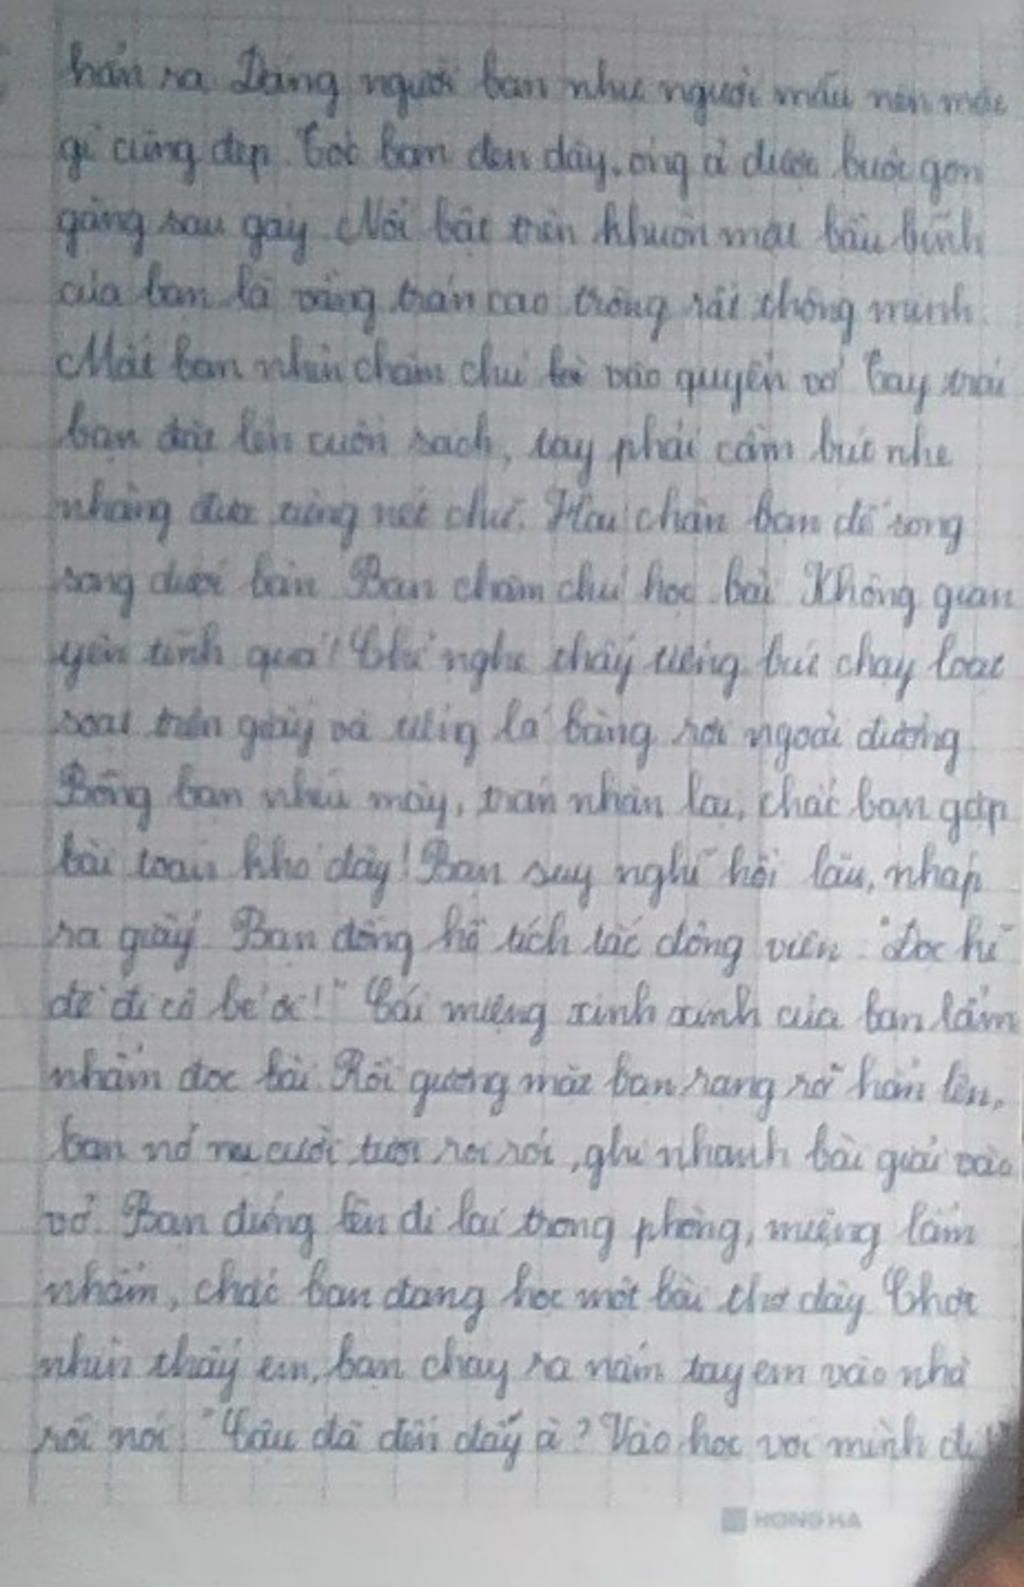 hẳn ra. Dáng người bạn như người mẫu nên mặc
gì cũng đẹp. Tóc bạn đen dày, óng ả được buộc gọn
gàng sau gáy. Nổi bật trên khuôn mặt bầu bĩnh
của bạn là vầng trán cao trông rất thông minh.
Mắt bạn nhìn chăm chú vào quyển vở. Tay trái
bạn đặt lên cuốn sách, tay phải cầm bút nhẹ
nhàng đưa từng nét chữ. Hai chân bạn để song
song dưới bàn. Bạn chăm chú học bài. Không gian
yên tĩnh quá! Chỉ nghe thấy tiếng bút chạy loạt
soạt trên giấy và tiếng lá bàng rơi ngoài đường.
Bỗng bạn nhíu mày, trán nhăn lại, chắc bạn gặp
bài toán khó đây! Bạn suy nghĩ hồi lâu, nháp
ra giấy. Bạn đồng hồ tích tắc động viên: "Đọc kĩ
đề đi cô bé ơi!" Cái miệng xinh xinh của bạn lẩm
nhẩm đọc bài. Rồi gương mặt bạn rạng rỡ hẳn lên,
bạn nở nụ cười tươi roi rói, ghi nhanh bài giải vào
vở. Bạn đứng lên đi lại trong phòng, miệng lẩm
nhẩm, chắc bạn đang học một bài thơ đây. Chợt
nhìn thấy em, bạn chạy ra nắm tay em vào nhà
rồi nói: "Cậu đã đến đấy à? Vào học với mình đi!"
HONG HA